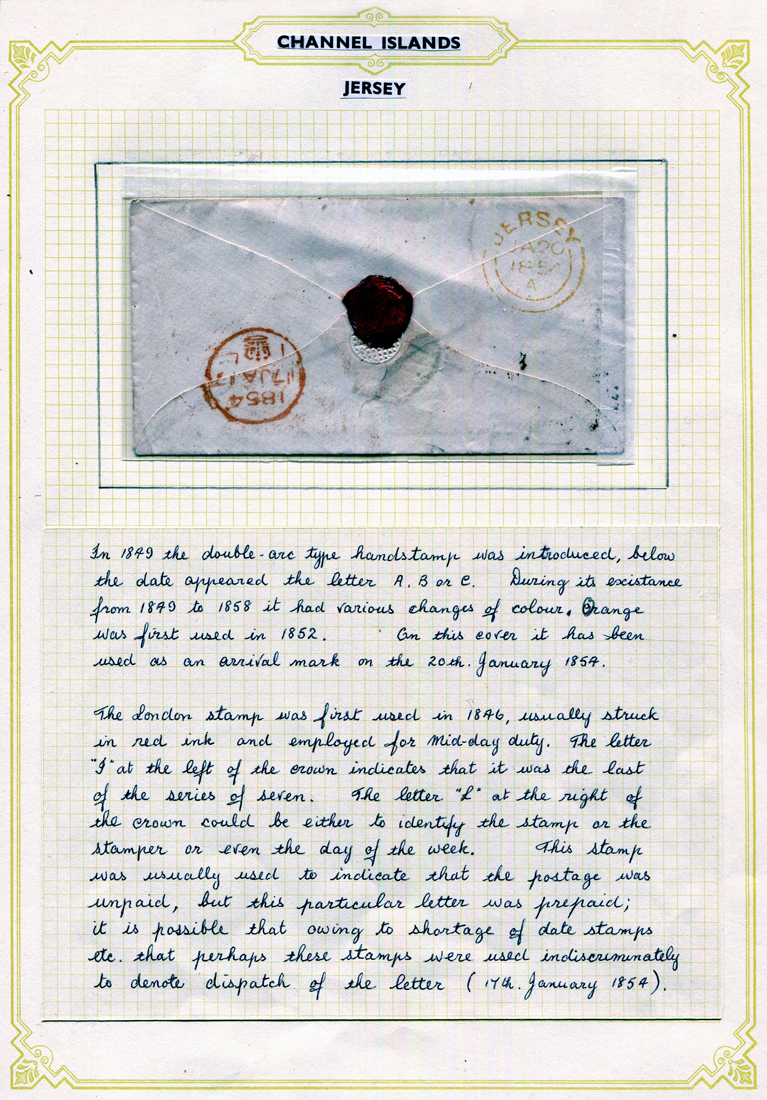 CHANNEL ISLANDS
JERSEY
JERSEY
JA 20
1854
A
17 JA 17
1854
In 1849 the double-arc type handstamp was introduced, below
the date appeared the letter A, B or C. During its existance
from 1849 to 1858 it had various changes of colour. Orange
was first used in 1852. On this cover it has been
used as an arrival mark on the 20th. January 1854.
The London stamp was first used in 1846, usually struck
in red ink and employed for Mid-day duty. The letter
"I" at the left of the crown indicates that it was the last
of the series of seven. The letter "L" at the right of
the crown could be either to identify the stamp or the
stamper or even the day of the week. This stamp
was usually used to indicate that the postage was
unpaid, but this particular letter was prepaid;
it is possible that owing to shortage of date stamps
etc. that perhaps these stamps were used indiscriminately
to denote dispatch of the letter (17th. January 1854).